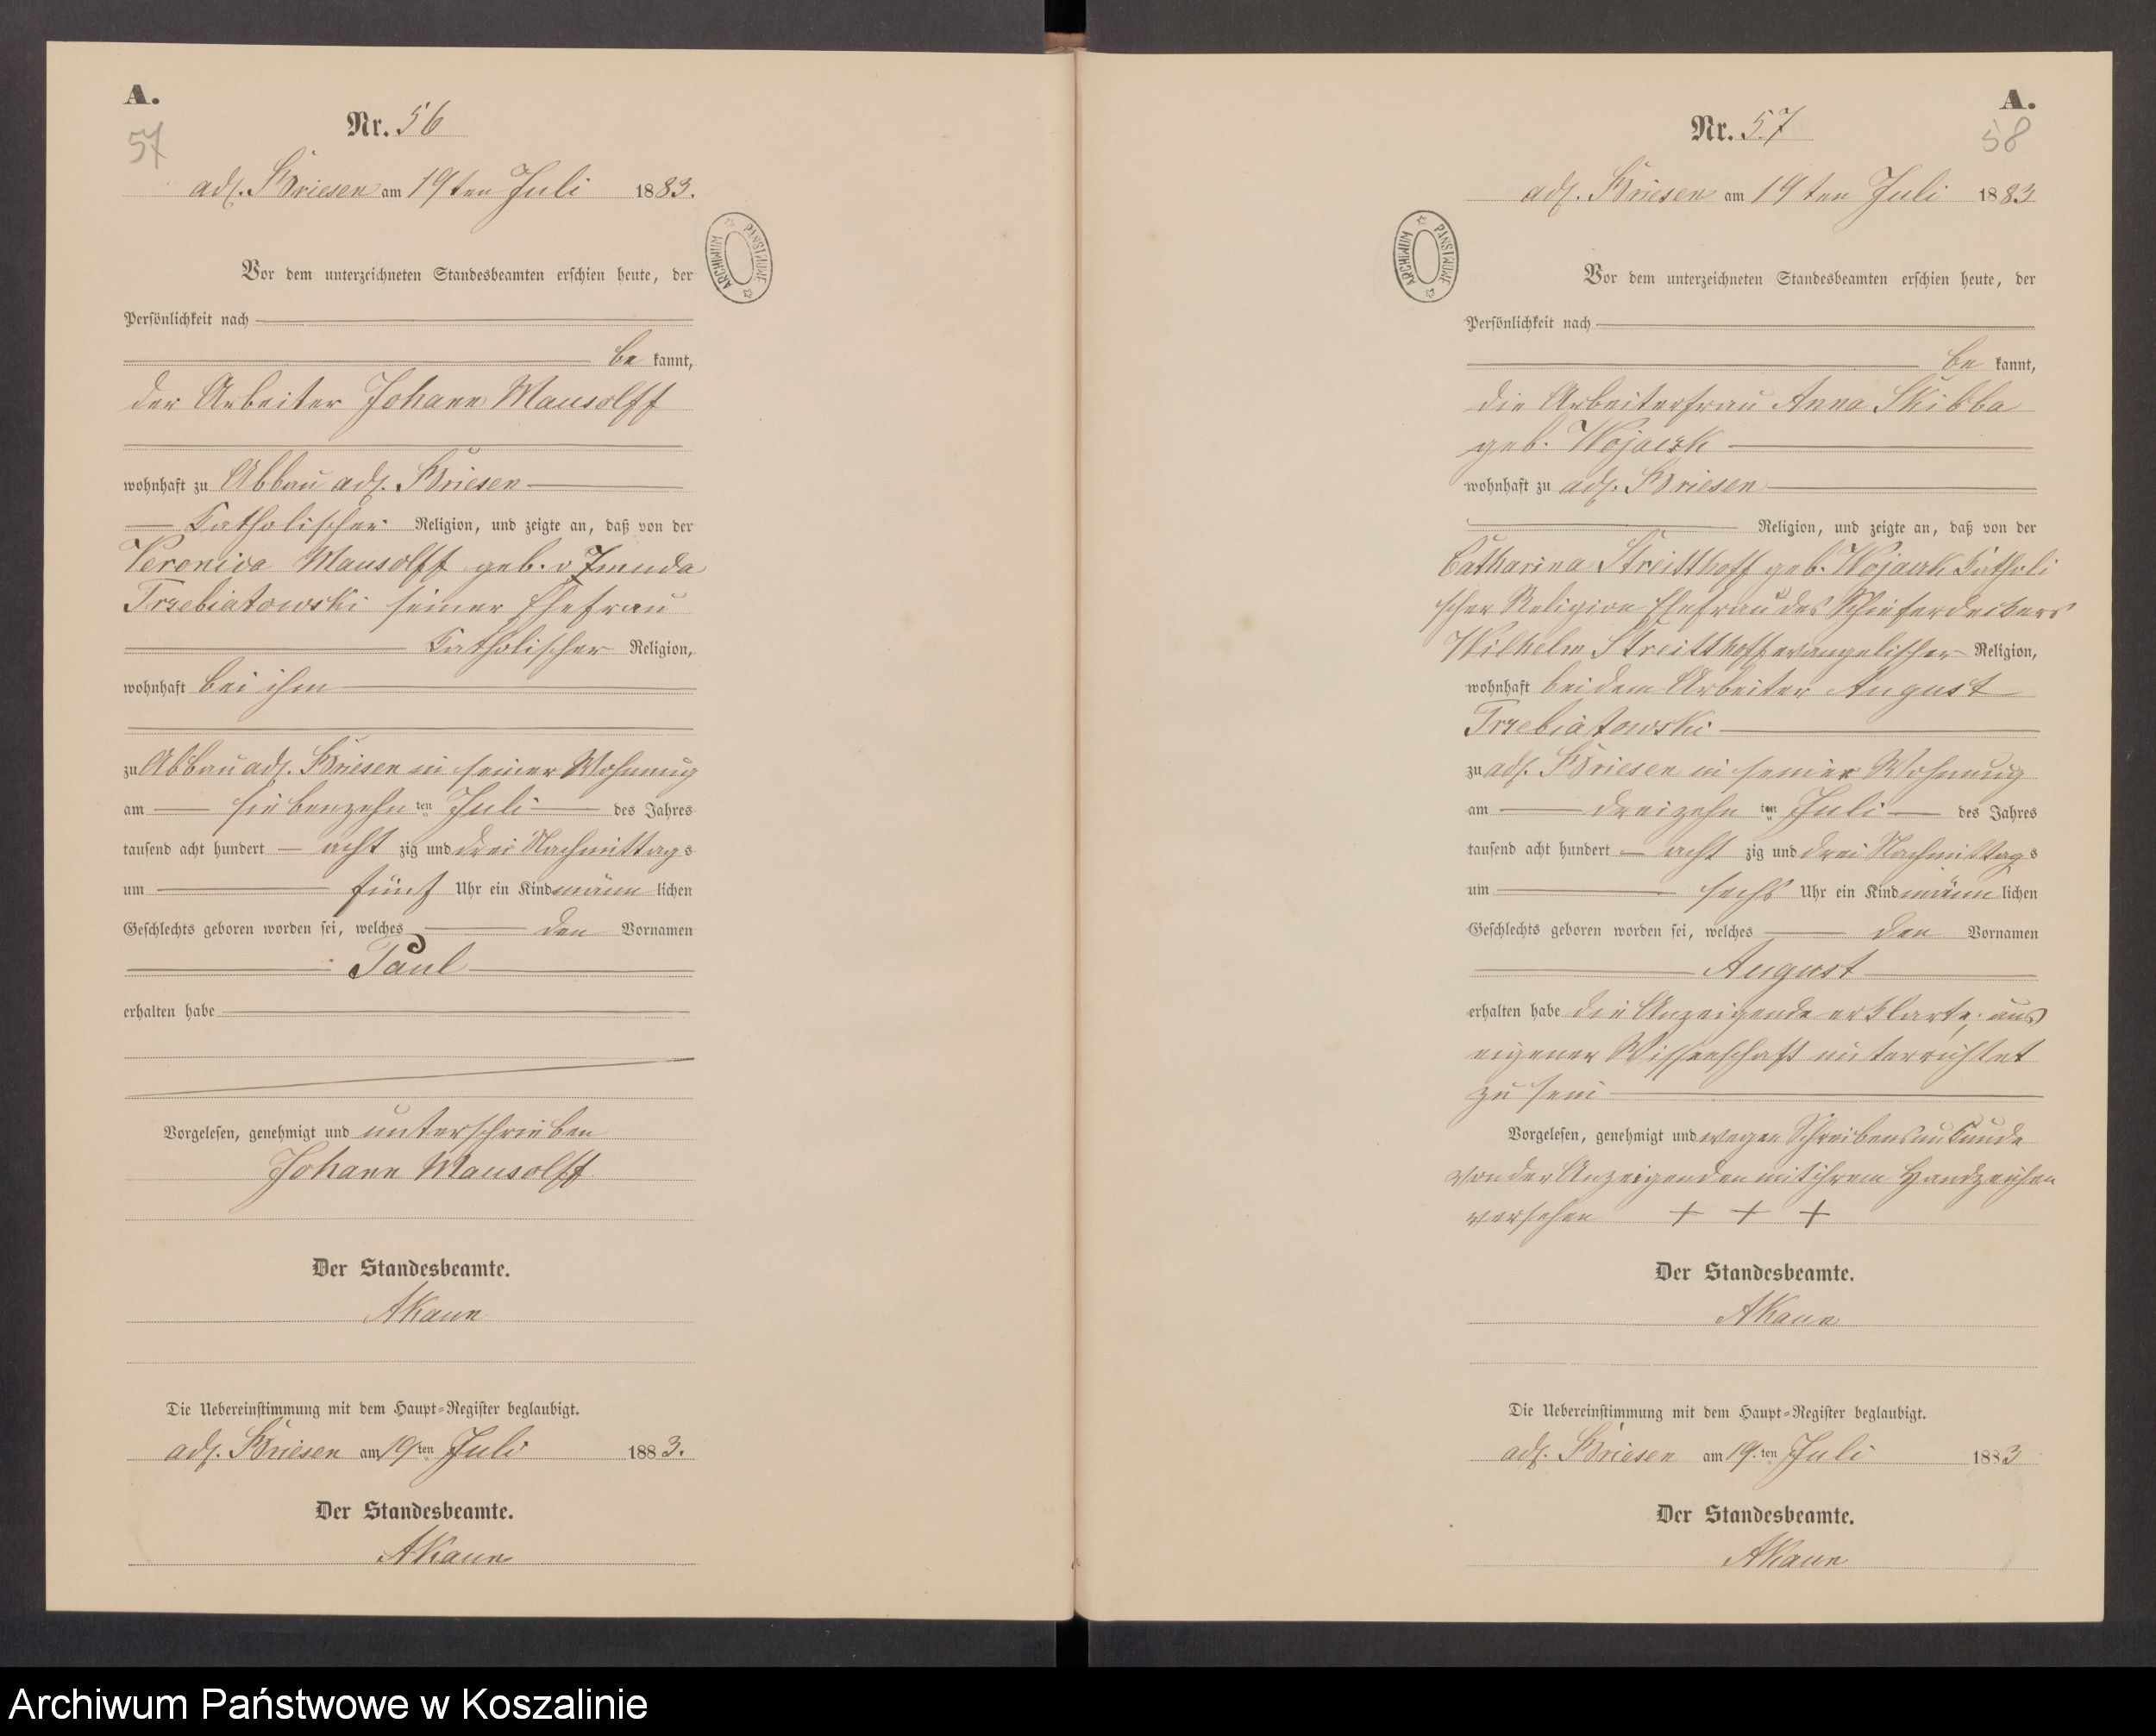 A.
57
Nr. 56
adl. Briesen am 19ten Juli 1883.
ARCHIWUM PAŃSTWOWE
Vor dem unterzeichneten Standesbeamten erschien heute, der
Persönlichkeit nach
be kannt,
der Arbeiter Johann Mausolff
wohnhaft zu Abbau adl. Briesen
katholischer Religion, und zeigte an, daß von der
Veronica Mausolff geb. v Zmuda
Trzebiatowski seiner Ehefrau
katholischer Religion,
wohnhaft bei ihm
zu Abbau adl. Briesen in seiner Wohnung
am siebenzehn ten Juli des Jahres
tausend acht hundert acht zig und drei Nachmittags
um fünf Uhr ein Kind männ lichen
Geschlechts geboren worden sei, welches den Vornamen
Paul
erhalten habe
Vorgelesen, genehmigt und unterschrieben
Johann Mausolff
Der Standesbeamte.
AKaun
Die Uebereinstimmung mit dem Haupt-Register beglaubigt.
adl. Briesen am 19. ten Juli 1883.
Der Standesbeamte.
AKaun
A.
58
Nr. 57
adl. Briesen am 19ten Juli 1883
ARCHIWUM PAŃSTWOWE
Vor dem unterzeichneten Standesbeamten erschien heute, der
Persönlichkeit nach
be kannt,
die Arbeiterfrau Anna Skibba
geb. Wojack
wohnhaft zu adl. Briesen
Religion, und zeigte an, daß von der
Catharina Streitthoff geb. Wojack katholi
scher Religion Ehefrau des Schieferdeckers
Wilhelm Streitthoff evangelischer Religion,
wohnhaft bei dem Arbeiter August
Trzebiatowski
zu adl. Briesen in seiner Wohnung
am dreizehn ten Juli des Jahres
tausend acht hundert acht zig und drei Nachmittags
um sechs Uhr ein Kind männ lichen
Geschlechts geboren worden sei, welches den Vornamen
August
erhalten habe die Anzeigende erklärte, aus
eigener Wissenschaft unterrichtet
zu sein
Vorgelesen, genehmigt und wegen Schreibensunkunde
von der Anzeigenden mit ihrem Handzeichen
versehen + + +
Der Standesbeamte.
AKaun
Die Uebereinstimmung mit dem Haupt-Register beglaubigt.
adl. Briesen am 19. ten Juli 1883
Der Standesbeamte.
AKaun
Archiwum Państwowe w Koszalinie